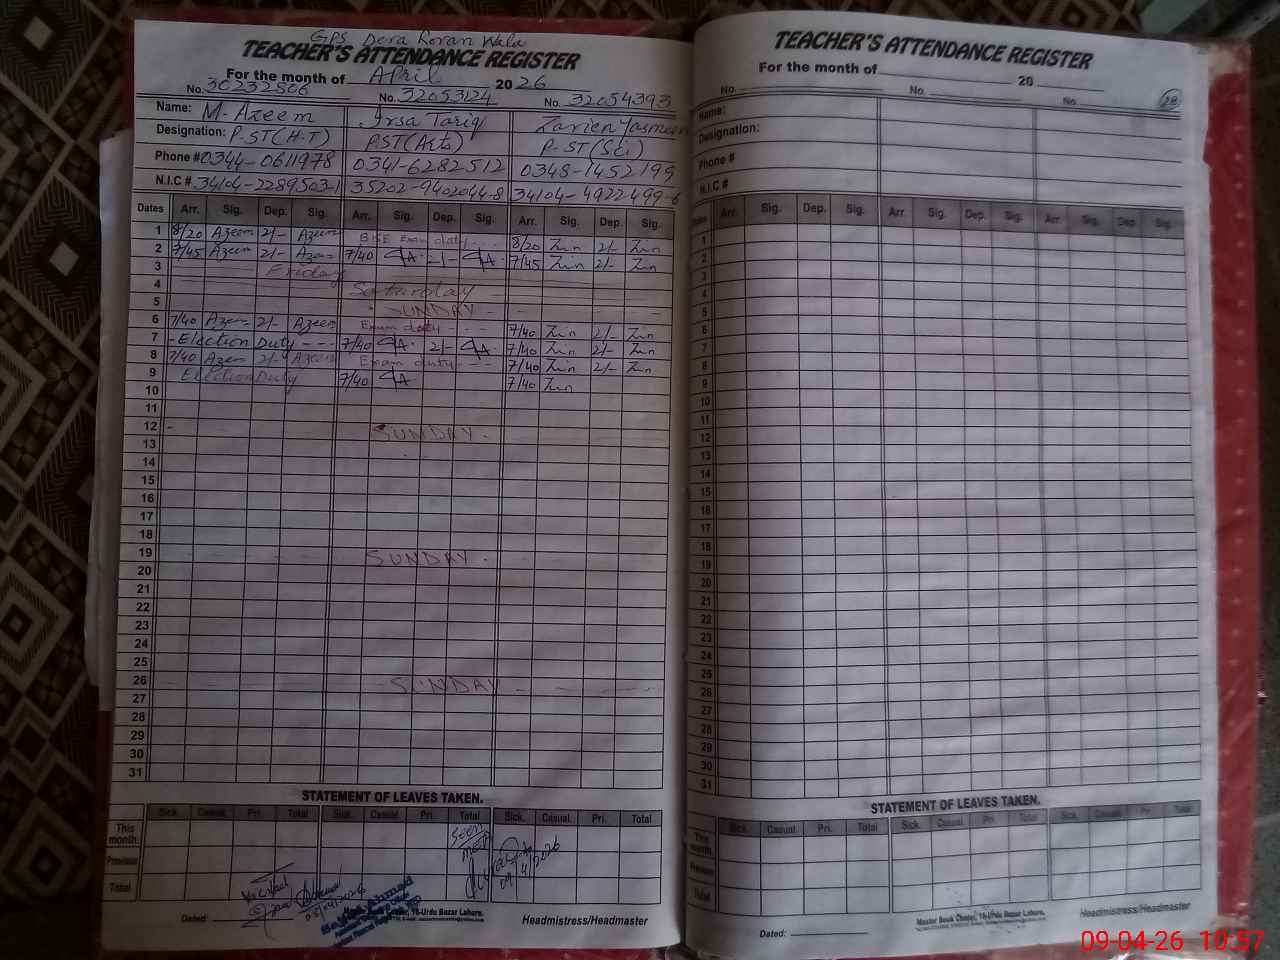 GPS Dera Roran Wala
TEACHER'S ATTENDANCE REGISTER
For the month of April 2026
No. 30232506 No. 32053124 No. 32054393
Name: M. Azeem Irsa Tariq Zarien Yasmeen
Designation: P-ST(H-T) PST(Arts) P-ST(Sci)
Phone # 0344-0611978 0341-6282512 0348-1452199
N.I.C # 34104-2289503-1 35202-9402044-8 34104-4922499-6
Dates Arr. Sig. Dep. Sig. Arr. Sig. Dep. Sig. Arr. Sig. Dep. Sig.
1 8/20 Azeem 2/- Azeem Exam duty 8/20 2/-
2 7/45 Azeem 2/- Azeem 7/40 7/45 2/-
3 Friday
4 Saturday
5 SUNDAY
6 7/40 Azeem 2/- Azeem Exam duty 7/40 2/-
7 Election Duty 7/40 2/- 7/40 2/-
8 7/40 Azeem 2/- Azeem Exam duty 7/40 2/-
9 Election Duty 7/40 7/40
10
11
12 SUNDAY
13
14
15
16
17
18
19 SUNDAY
20
21
22
23
24
25
26 SUNDAY
27
28
29
30
31
STATEMENT OF LEAVES TAKEN.
Sick. Casual. Pri. Total Sick. Casual. Pri. Total Sick. Casual. Pri. Total
This month
Previous
Total
Seen
09/4/2026
Dated:
Headmistress/Headmaster
TEACHER'S ATTENDANCE REGISTER
For the month of 20
No. No. No. 28
Name:
Designation:
Phone #
N.I.C #
Dates Arr. Sig. Dep. Sig. Arr. Sig. Dep. Sig. Arr. Sig. Dep. Sig.
1
2
3
4
5
6
7
8
9
10
11
12
13
14
15
16
17
18
19
20
21
22
23
24
25
26
27
28
29
30
31
STATEMENT OF LEAVES TAKEN.
Sick. Casual. Pri. Total Sick. Casual. Pri. Total Sick. Casual. Pri. Total
This month
Previous
Total
Master Book Center, 16-Urdu Bazar Lahore.
Dated:
Headmistress/Headmaster
09-04-26 10:57